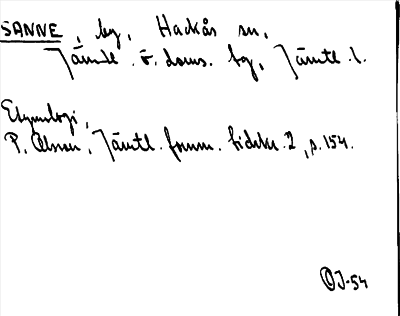 SANNE, by, Hackås sn,
Jämtl. ö. doms. hg, Jämtl. l.
Etymologi,
P. Olsson, Jämtl. fornm. tidskr. 2, s. 154.
OJ-54